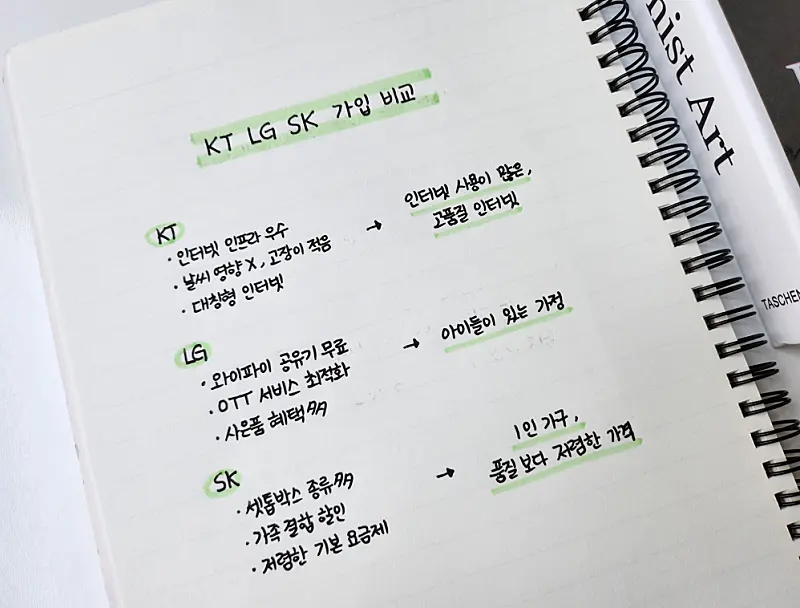 KT LG SK 가입 비교
KT
· 인터넷 인프라 우수
· 날씨 영향 X, 고장이 적음
· 대칭형 인터넷
→ 인터넷 사용이 많은,
고품질 인터넷
LG
· 와이파이 공유기 무료
· OTT 서비스 최적화
· 사은품 혜택
→ 아이들이 있는 가정
SK
· 셋톱박스 종류
· 가족 결합 할인
· 저렴한 기본 요금제
→ 1인 가구,
품질보다 저렴한 가격
nist Art
TASCHEN